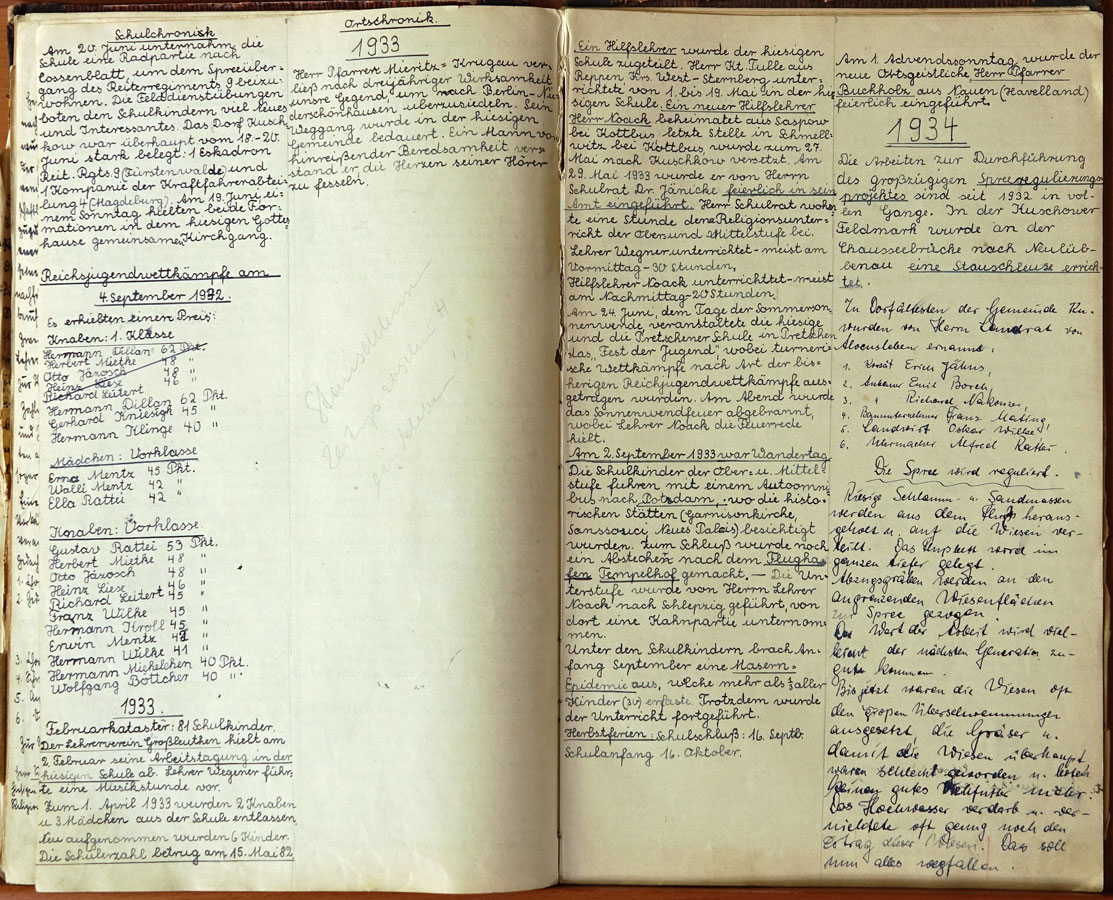 Schulchronik
Am 20. Juni unternahm die
Schule eine Radpartie nach
Cossenblatt, um dem Spreeüber=
gang des Reiterregiments 9 beizu-
wohnen. Die Felddienstübungen
boten den Schulkindern viel Neues
und Interessantes. Das Dorf Kusch
kow war überhaupt vom 18.-20.
Juni stark belegt: 1 Eskadron
Reit. Rgts. 9 (Fürstenwalde) und
1 Kompanie der Kraftfahrerabtei-
lung 4 (Magdeburg). Am 19. Juni ei-
nem Sonntag hielten beide For-
mationen in dem hiesigen Gottes
hause gemeinsamen Kirchgang.
Reichsjugendwettkämpfe am
4. September 1932.
Es erhielten einen Preis:
Knaben: 1. Klasse
Hermann Dillan 62 Pkt.
Herbert Miethe 48 "
Otto Järosch 48 "
Heinz Liese 46 "
Richard Leitert
Hermann Dillan 62 Pkt.
Gerhard Kniesigk 45 "
Hermann Klinge 40 "
Mädchen: Vorklasse
Erna Mentz 45 Pkt.
Walli Mentz 42 "
Ella Rattei 42 "
Knaben: Vorklasse
Gustav Rattei 53 Pkt.
Herbert Miethe 48 "
Otto Järosch 48 "
Heinz Liese 46 "
Richard Leitert 45 "
Franz Wilke 45 "
Hermann Kroll 45 "
Erwin Mentz 42 "
Hermann Wilke 41 "
Hermann Michelchen 40 Pkt.
Wolfgang Böttcher 40 "
1933.
Februarkataster: 81 Schulkinder.
Der Lehrerverein Großleuthen hielt am
2. Februar seine Arbeitstagung in der
hiesigen Schule ab. Lehrer Wegener führ-
te eine Musikstunde vor.
Zum 1. April 1933 wurden 2 Knaben
u. 3 Mädchen aus der Schule entlassen,
Neu aufgenommen wurden 6 Kinder.
Die Schülerzahl betrug am 15. Mai 82
Ortschronik.
1933
Herr Pfarrer Mieritz=Krugau ver-
ließ nach dreijähriger Wirksamkeit
unsre Gegend, um nach Berlin-Nie
derschönhausen überzusiedeln. Sein
Weggang wurde in der hiesigen
Gemeinde bedauert. Ein Mann von
hinreißender Beredsamkeit ver=
stand er die Herzen seiner Hörer
zu fesseln.
Ein Hilfslehrer wurde der hiesigen
Schule zugeteilt. Herr Kt. Tulle aus
Reppen Krs. West-Sternberg unter-
richtete von 1. bis 19. Mai in der hie
sigen Schule. Ein neuer Hilfslehrer
Herr Noack beheimatet aus Saspow
bei Kottbus letzte Stelle in Schmell-
witz bei Kottbus, wurde zum 27.
Mai nach Kuschkow versetzt. Am
29. Mai 1933 wurde er von Herrn
Schulrat Dr. Jänicke feierlich in sein
Amt eingeführt. Herr Schulrat wohn
te eine Stunde dem Religionsunter-
richt der Ober= und Mittelstufe bei.
Lehrer Wegner unterrichtet - meist am
Vormittag - 30 Stunden,
Hilfslehrer Noack unterrichtet - meist
am Nachmittag - 20 Stunden.
Am 24. Juni, dem Tage der Sommerson-
nenwende, veranstaltete die hiesige
und die Pretschener Schule in Pretschen
das "Fest der Jugend" wobei turneri-
sche Wettkämpfe nach Art der bis=
herigen Reichjugendwettkämpfe aus-
getragen wurden. Am Abend wurde
das Sonnenwendfeuer abgebrannt,
wobei Lehrer Noack die Feuerrede
hielt.
Am 2. September 1933 war Wandertag
Die Schulkinder der Ober- u. Mittel
stufe fuhren mit einem Autoomni
bus nach Potsdam, wo die histo-
rischen Stätten (Garnisonkirche,
Sanssouci, Neues Palais) besichtigt
wurden. Zum Schluß wurde noch
ein Abstecher nach dem Flugha-
fen Tempelhof gemacht. — Die Un-
terstufe wurde von Herrn Lehrer
Noack nach Schlepzig geführt, von
dort eine Kahnpartie unternom
men.
Unter den Schulkindern brach An-
fang September eine Masern=
Epidemie aus, welche mehr als aller
Kinder (30) erfaste. Trotzdem wurde
der Unterricht fortgeführt.
Herbstferien: Schulschluß: 16. Septb.
Schulanfang 16. Oktober.
Am 1. Advendssonntag wurde der
neue Ortsgeistliche Herr Pfarrer
Buchholz aus Nauen (Havelland)
feierlich eingeführt.
1934
Die Arbeiten zur Durchführung
des großzügigen Spreeregulierungs
projektes sind seit 1932 in vol-
len Gange. In der Kuschower
Feldmark wurde an der
Chausseebrücke nach Neulüb-
benau eine Stauschleuse errich
tet.
Zu Dorfältesten der Gemeinde Ku.
wurden von Herrn Landrat von
Alvensleben ernannt:
1. Erich Jühns,
2. Emil Borch,
3. " Richard Nakonzer,
4. Bauunternehmer Franz Mating,
5. Landwirt Oskar Wilke,
6. Uhrmacher Alfred Rattei.
Die Spree wird reguliert.
Riesige Schlamm- u. Sandmassen
werden aus dem Fluß heraus-
geholt u. auf die Wiesen ver-
teilt. Das Flussbett wird im
ganzen tiefer gelegt.
Abzugsgräben werden an den
angrenzenden Wiesenflächen
zur Spree gezogen.
Der Wert der Arbeit wird viel-
leicht der nächsten Generation zu-
gute kommen.
Bis jetzt waren die Wiesen oft
den großen Überschwemmungen
ausgesetzt, die Gräser u.
damit die Wiesen überhaupt
waren schlecht geworden u. boten
keinen gutes Viehfutter mehr.
Das Hochwasser verdarb u. ver-
nichtete oft genug noch den
Ertrag dieser Wiesen. Das soll
nun alles wegfallen.